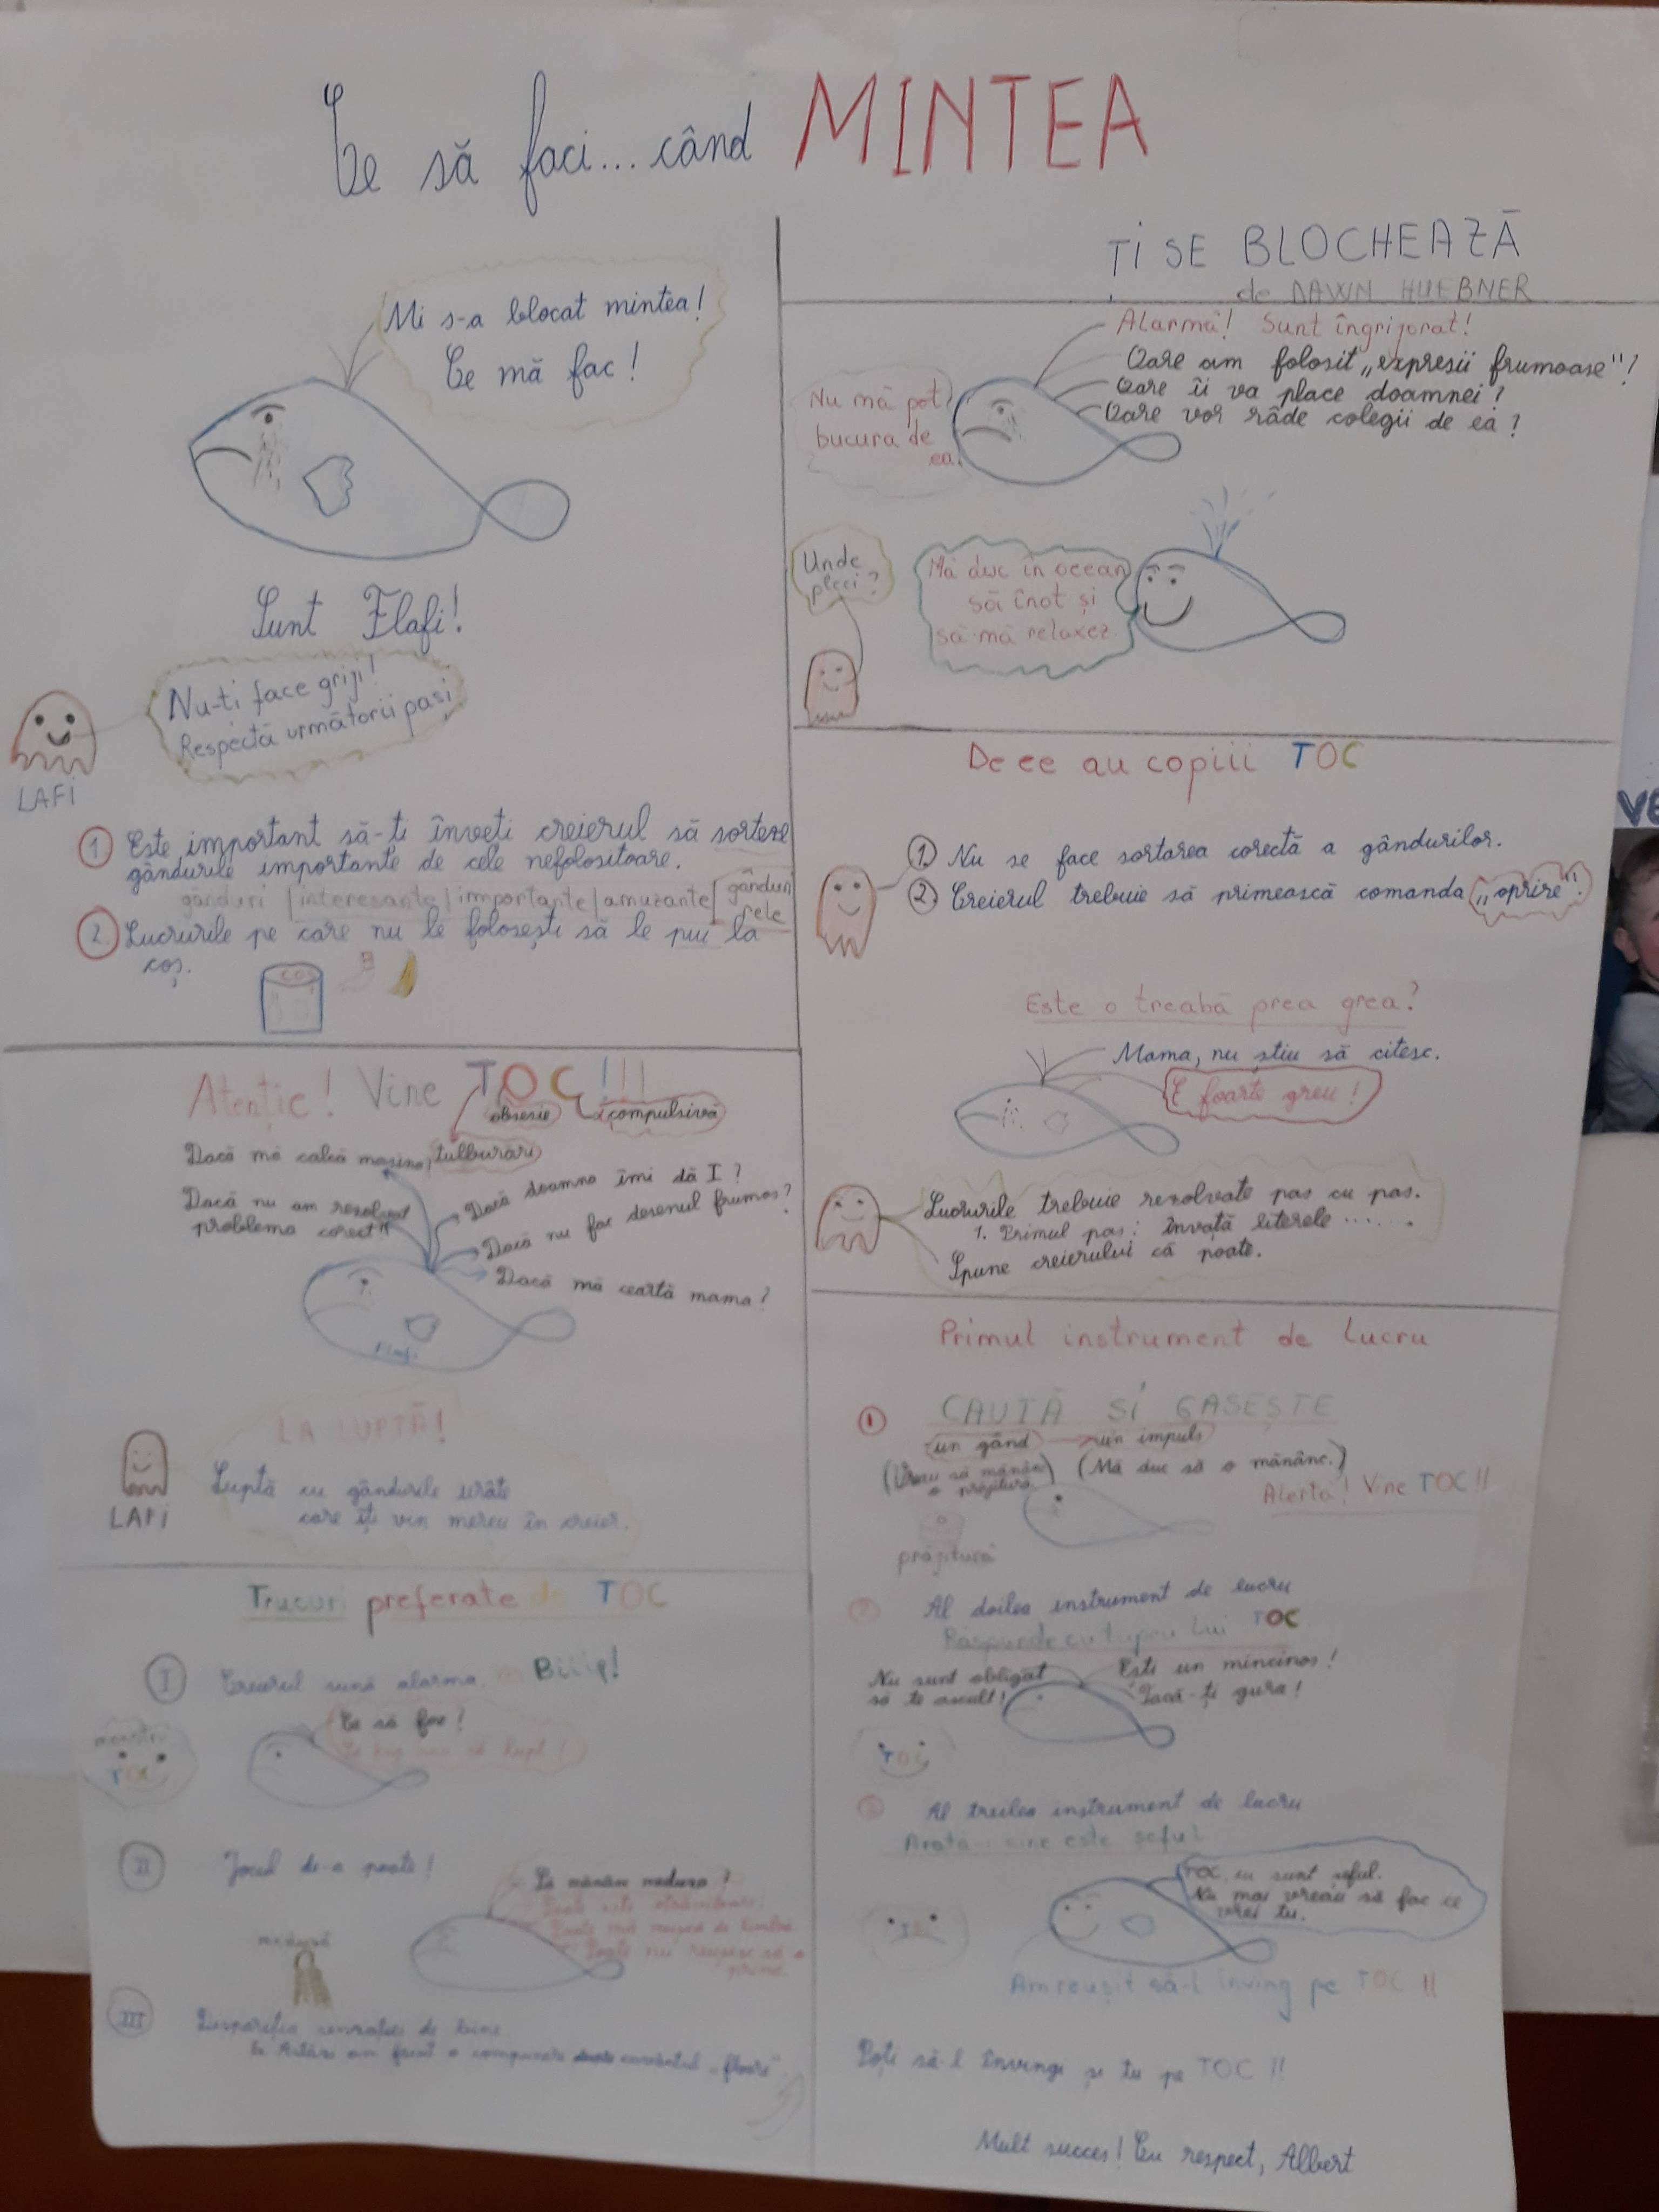 Ce să faci... când MINTEA
ȚI SE BLOCHEAZĂ
de DAWN HUEBNER
Mi s-a blocat mintea!
Ce mă fac!
Sunt Flafi!
Nu-ti face griji!
Respectă următorii pasi
LAFI
1 Este important să-ți înveți creierul să sorteze
gândurile importante de cele nefolositoare.
gânduri | interesante | importante | amuzante | gânduri
rele
2. Lucrurile pe care nu le folosești să le pui la
coș.
COȘ
Atenție! Vine TOC!!!
obsesie compulsivă
Dacă mă calcă mașina, tulburări
Dacă nu am rezolvat
problema corect!!
Dacă doamna îmi dă I?
Dacă nu fac desenul frumos?
Dacă mă ceartă mama?
Flafi
LA LUPTĂ!
Luptă cu gândurile urâte
care îți vin mereu în creier.
LAFI
Trucuri preferate de TOC
I Creierul sună alarma. Biiip!
Ce să fac!
TOC
II Jocul de-a poate!
Să mănânc meduza?
meduză
III Dispariția senzației de bine
am făcut o compunere cuvântul „floare"
Alarmă! Sunt îngrijorat!
Oare am folosit „expresii frumoase"!
Oare îi va place doamnei?
Oare vor râde colegii de ea?
Nu mă pot
bucura de
ea.
Unde
pleci?
Mă duc în ocean
să înot și
să mă relaxez.
De ce au copiii TOC
1. Nu se face sortarea corectă a gândurilor.
2. Creierul trebuie să primească comanda „oprire".
Este o treabă prea grea?
Mama, nu știu să citesc.
E foarte greu!
Lucrurile trebuie rezolvate pas cu pas.
1. Primul pas: învață literele .......
Spune creierului că poate.
Primul instrument de lucru
1 CAUTĂ ȘI GĂSEȘTE
un gând un impuls
(Vreau să mănânc
o prăjitură.) (Mă duc să o mănânc.)
Alertă! Vine TOC!!
prăjitură
2 Al doilea instrument de lucru
Răspunde cu tupeu lui TOC
Nu sunt obligat
să te ascult!
Ești un mincinos!
Tacă-ți gura!
TOC
3 Al treilea instrument de lucru
Arată cine este șeful
TOC, eu sunt șeful.
Nu mai vreau să fac ce
vrei tu.
Am reușit să-l înving pe TOC!!
Poți să-l învingi și tu pe TOC!!
Mult succes! Cu respect, Albert